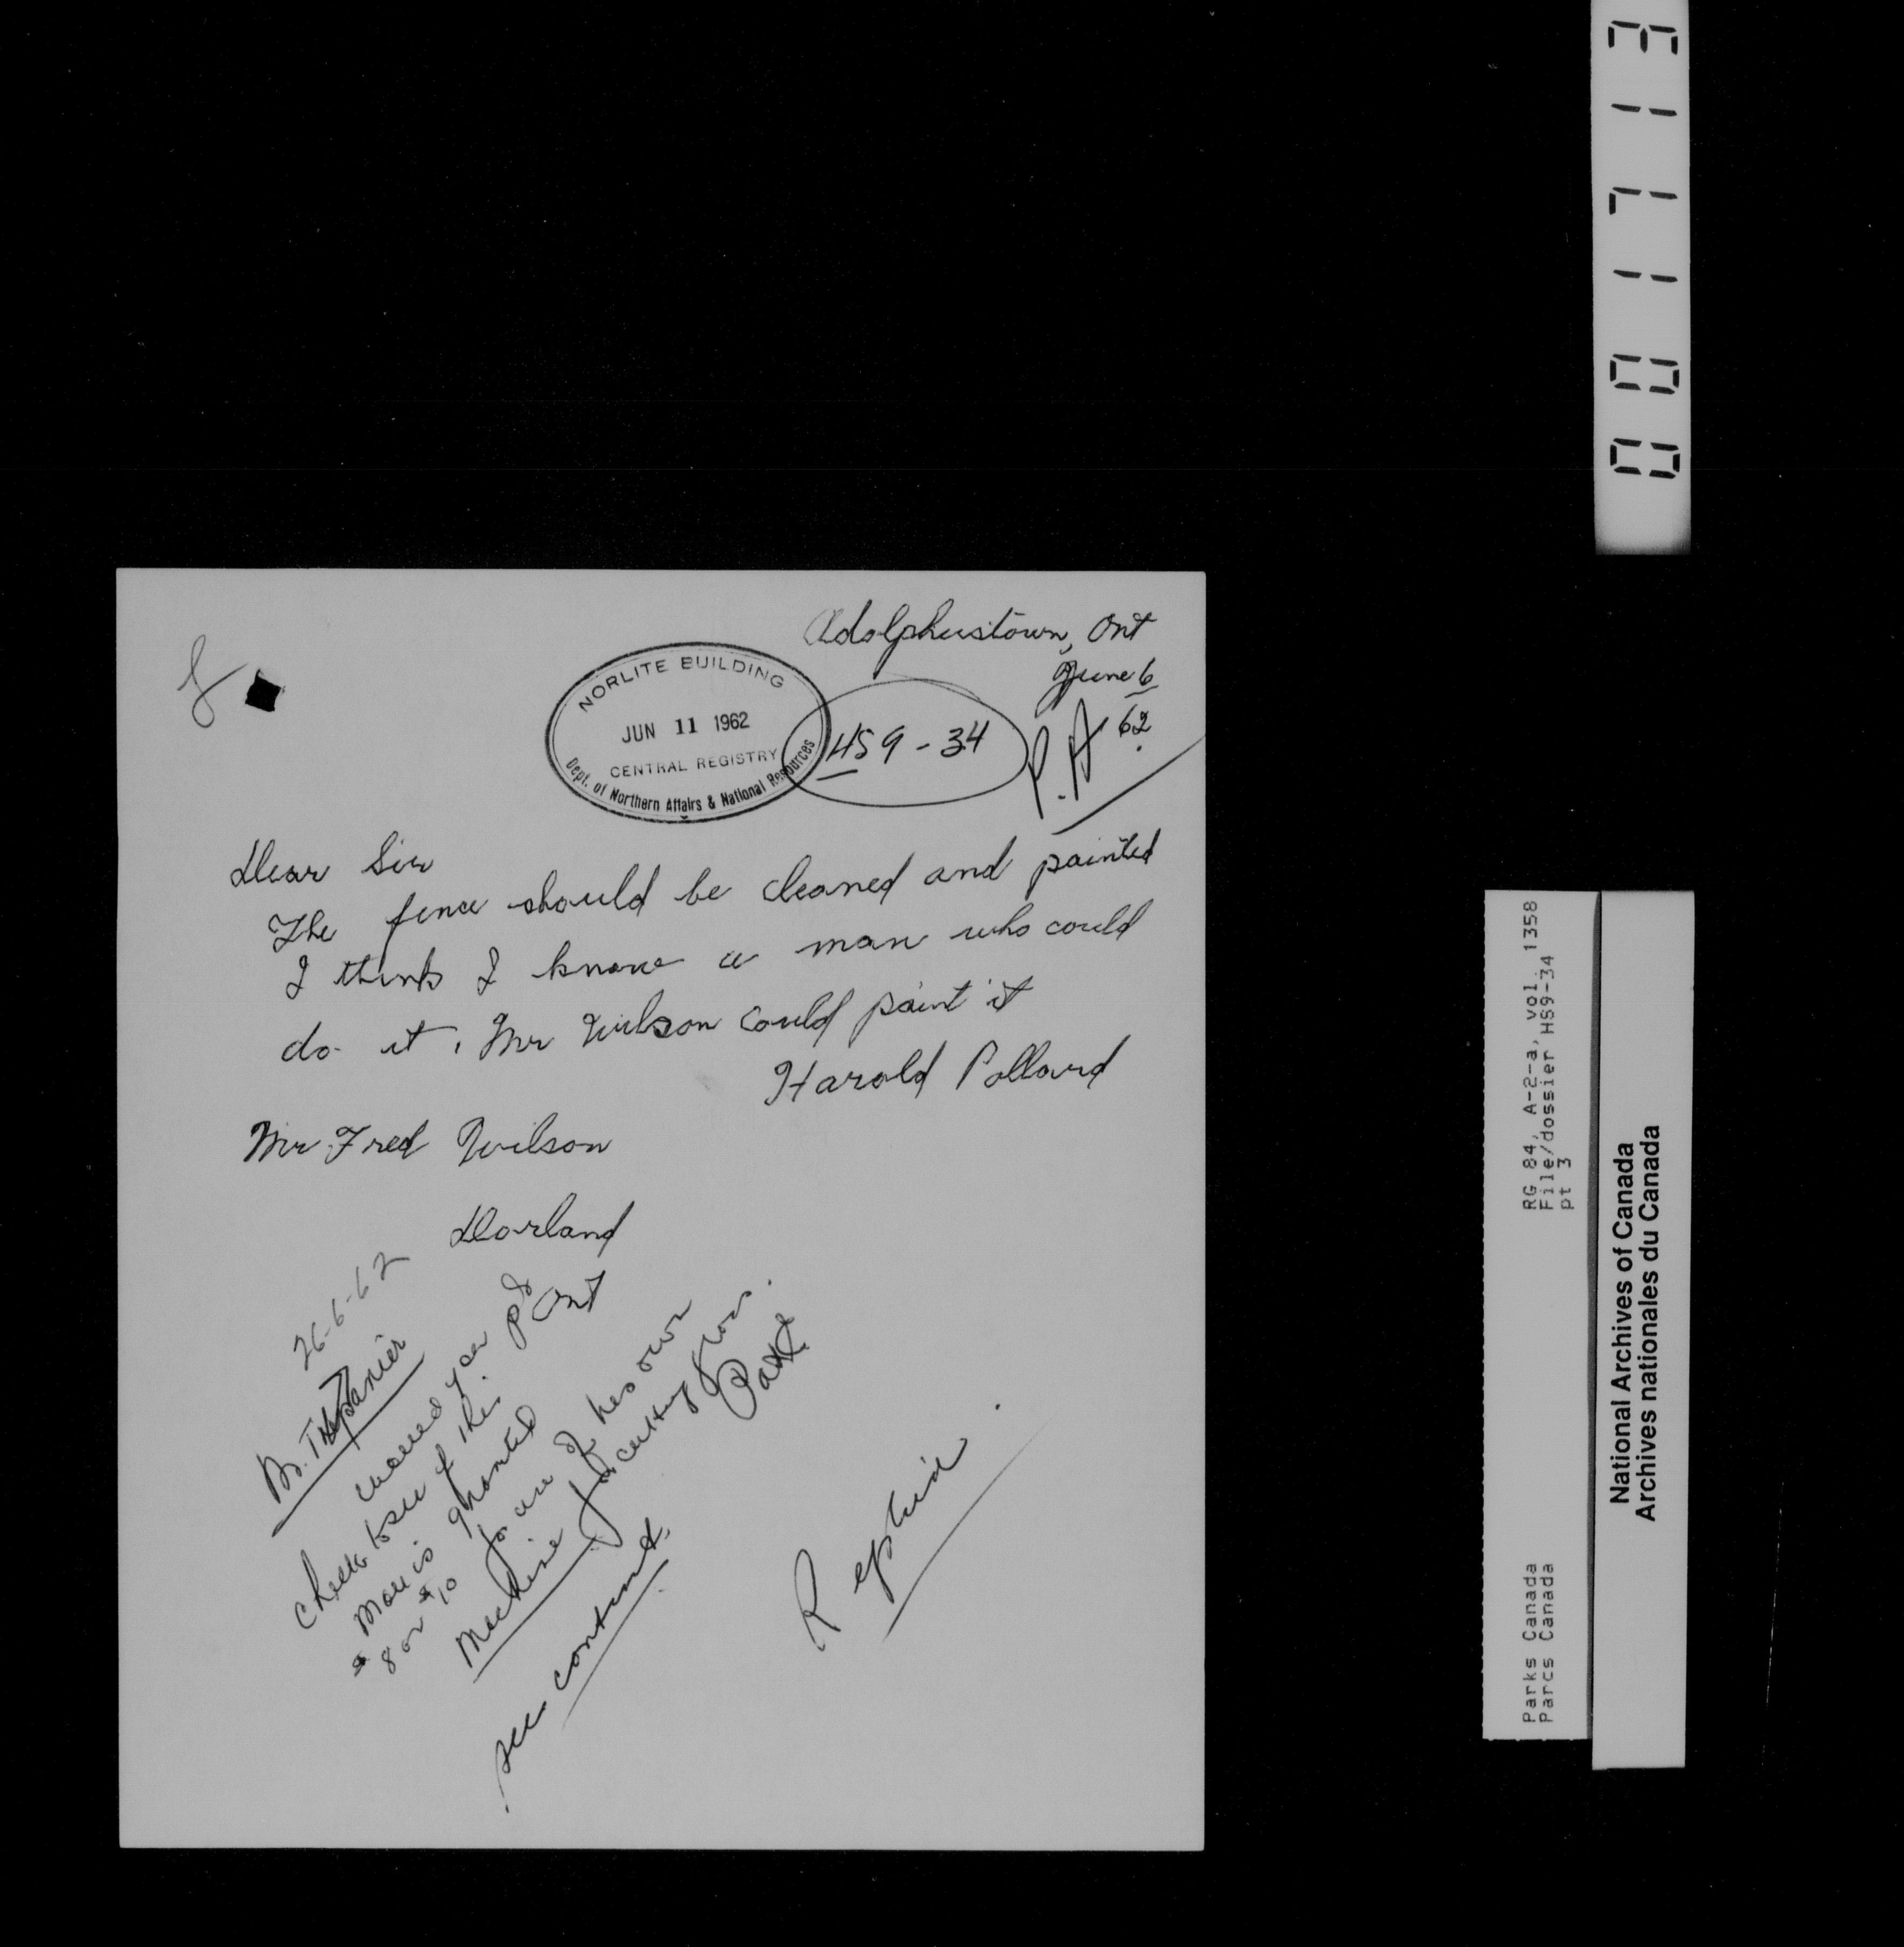 Adolphustown, Ont
June 6
62
P.A
NORLITE BUILDING
JUN 11 1962
CENTRAL REGISTRY
Dept. of Northern Affairs & National Resources
HS9-34
Dear Sir
The fence should be cleaned and painted
I think I know a man who could
do it, Mr Wilson could paint it
Harold Pollard
Mr. Fred Wilson
Dorland
Ont
26-6-62
Mr. Trepanier
would you pls
check to see if this
man is granted
$8 or $10 for use of his own
machine for cutting grass.
see contract.
001713
RG 84, A-2-a, vol. 1358
File/dossier HS9-34
pt 3
Parks Canada
Parcs Canada
National Archives of Canada
Archives nationales du Canada